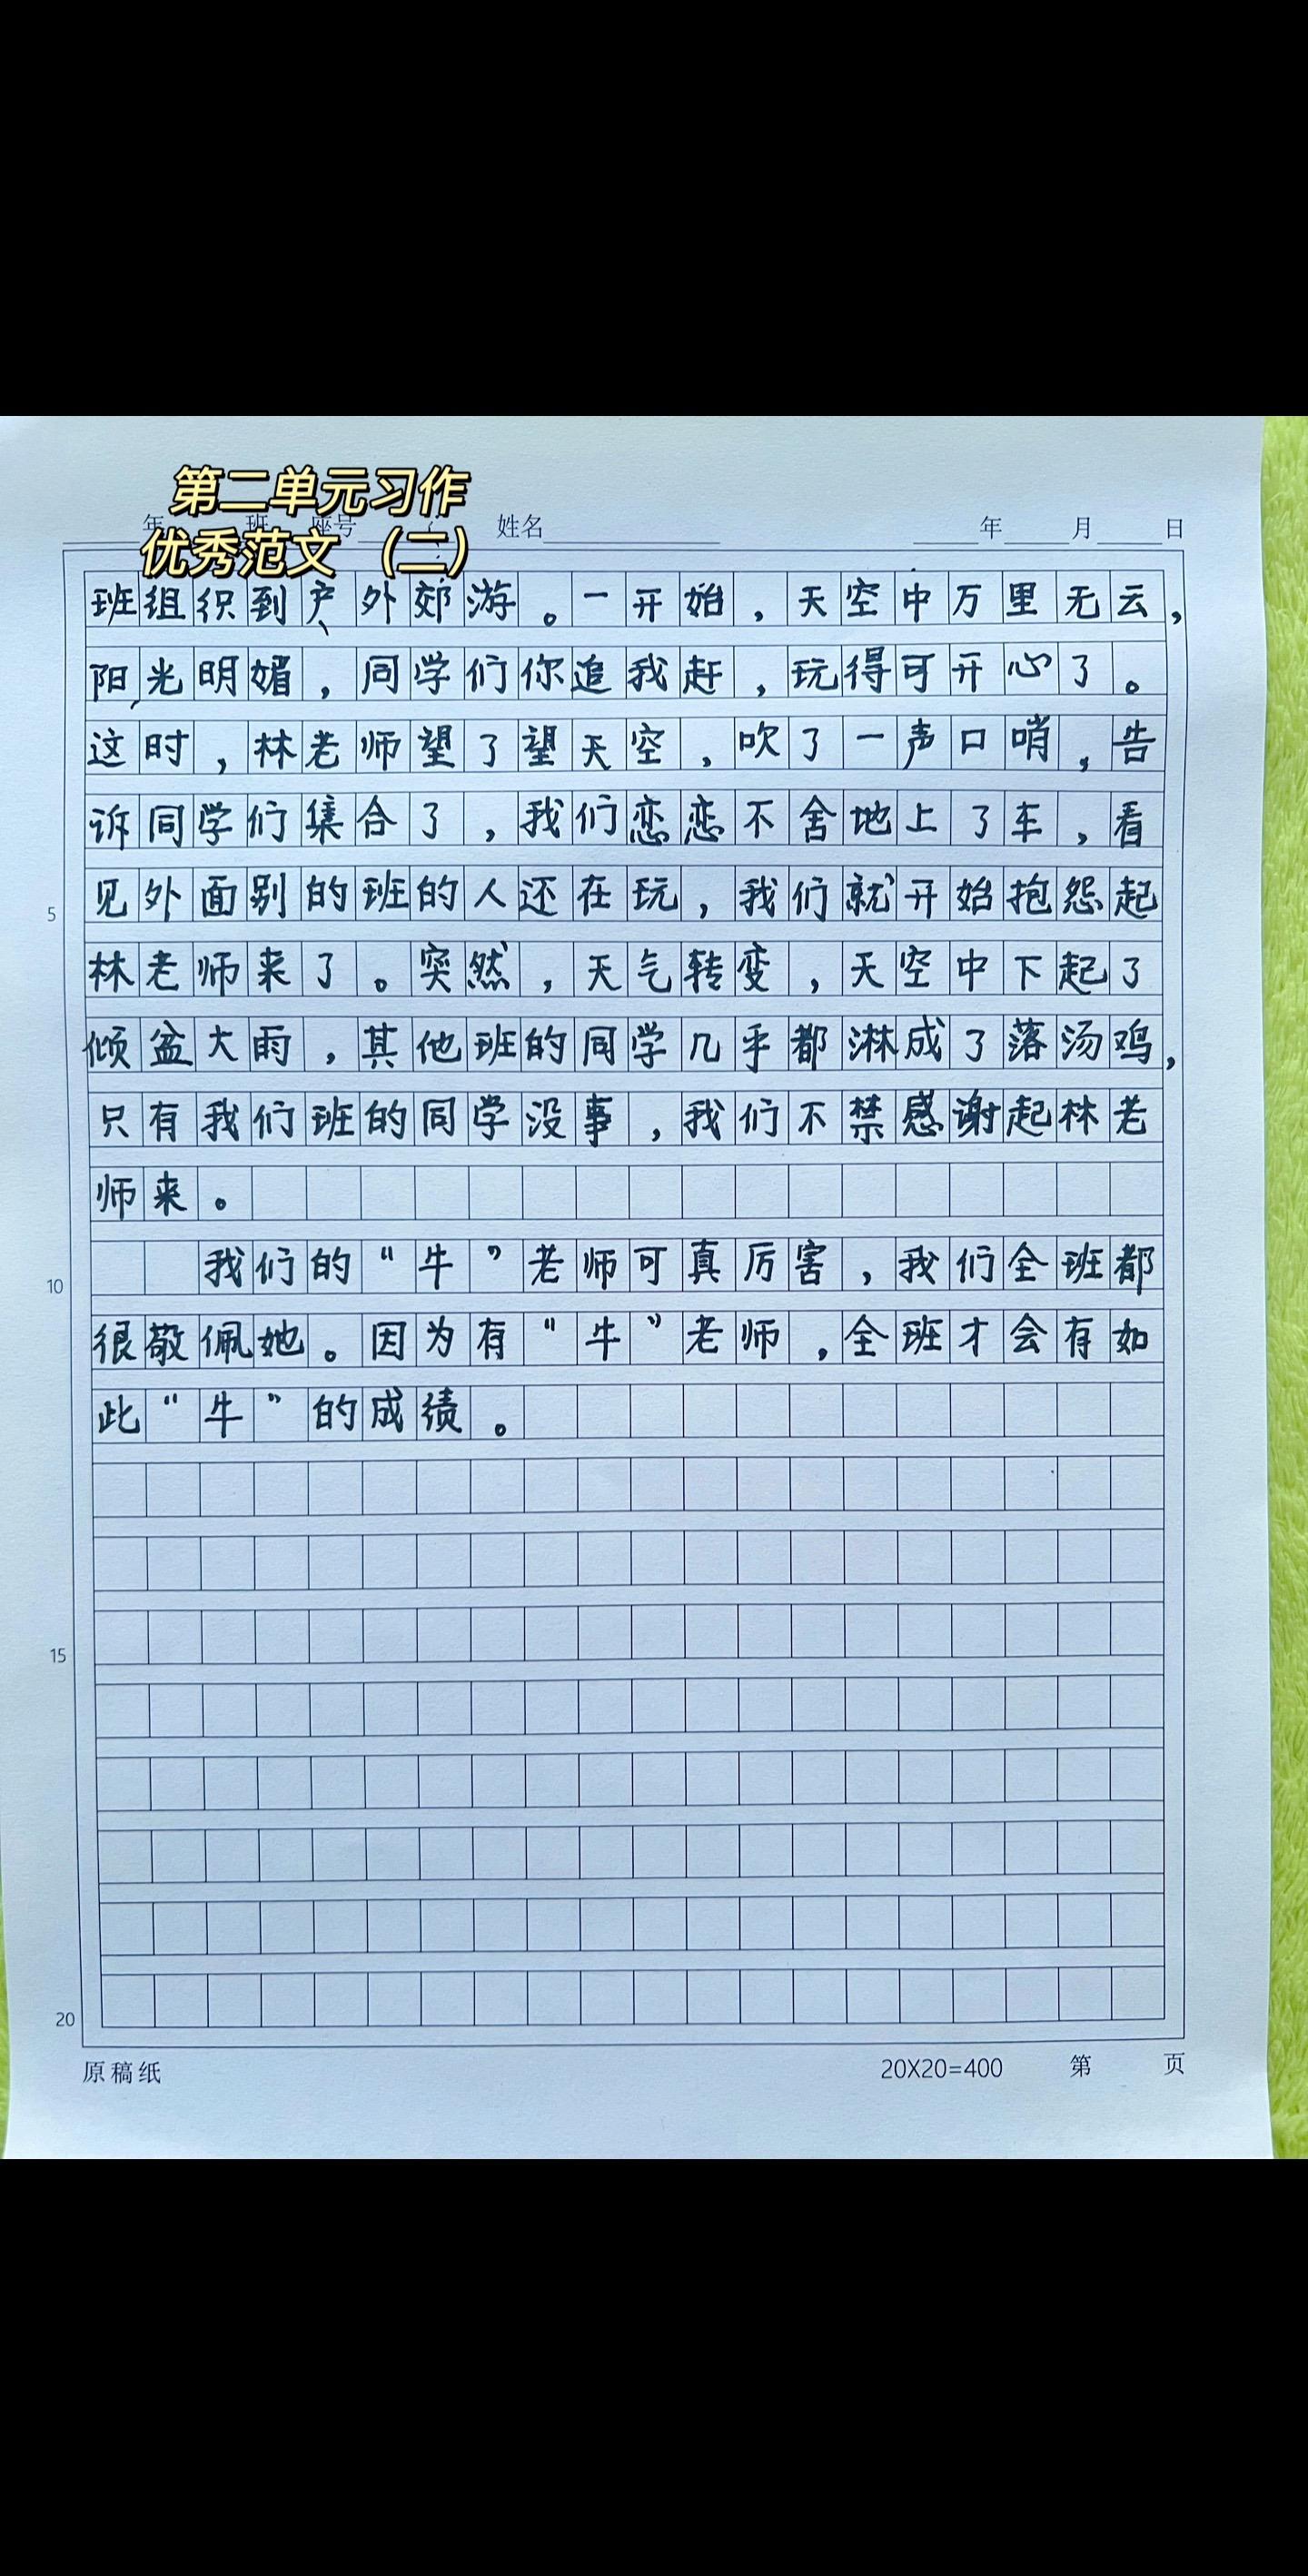 第二单元习作
优秀范文（二）
年 班 座号 姓名 年 月 日
班组织到户外郊游。一开始，天空中万里无云，
阳光明媚，同学们你追我赶，玩得可开心了。
这时，林老师望了望天空，吹了一声口哨，告
诉同学们集合了，我们恋恋不舍地上了车，看
5 见外面别的班的人还在玩，我们就开始抱怨起
林老师来了。突然，天气转变，天空中下起了
倾盆大雨，其他班的同学几乎都淋成了落汤鸡，
只有我们班的同学没事，我们不禁感谢起林老
师来。
10 我们的“牛”老师可真厉害，我们全班都
很敬佩她。因为有“牛”老师，全班才会有如
此“牛”的成绩。
15
20
原稿纸 20X20=400 第 页